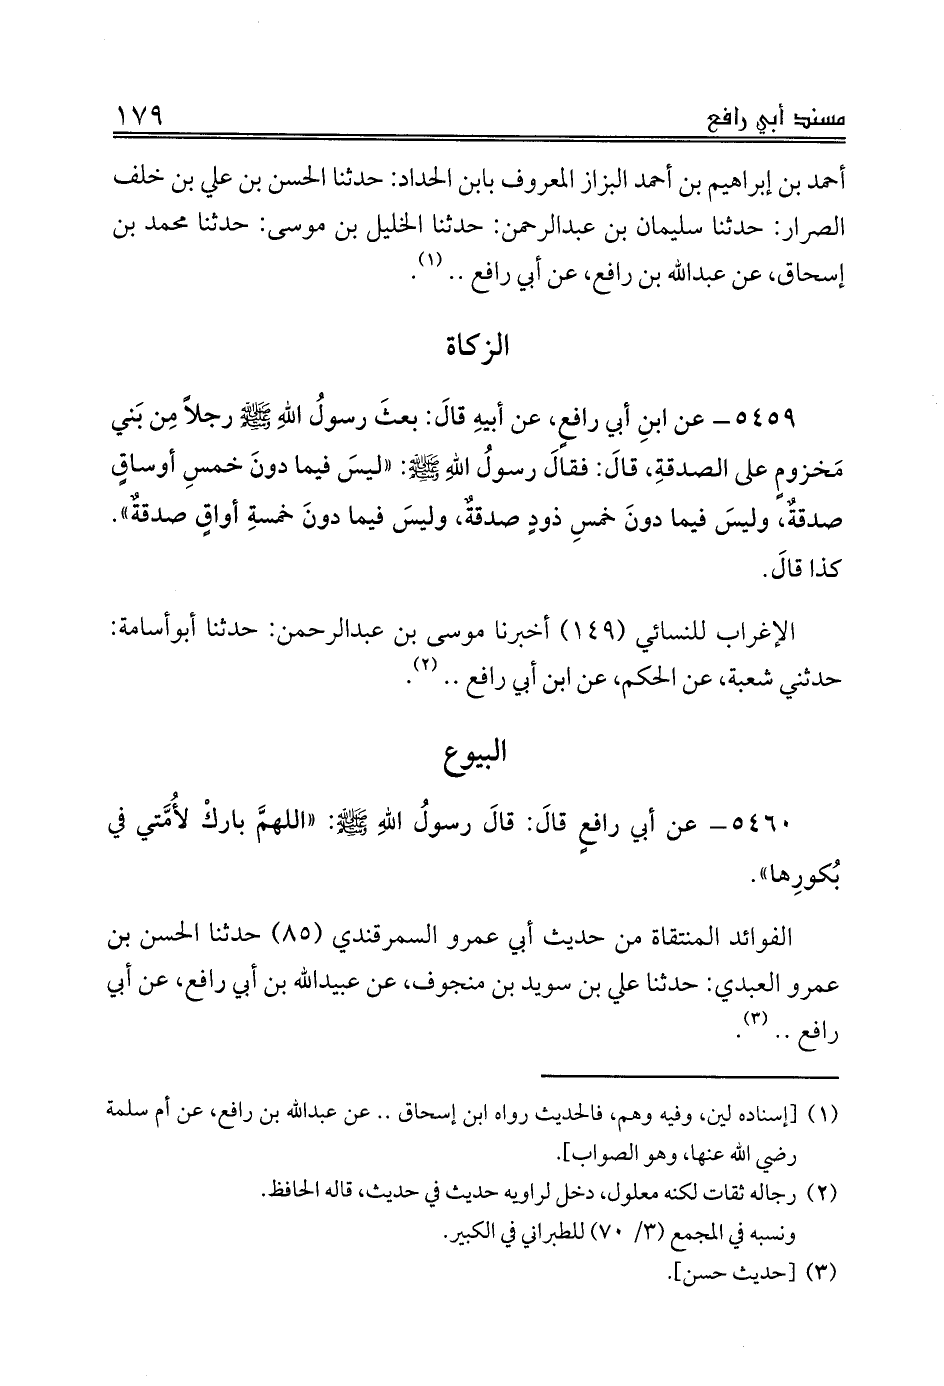 مسند أبي رافع ١٧٩
أحمد بن إبراهيم بن أحمد البزاز المعروف بابن الحداد: حدثنا الحسن بن علي بن خلف
الصرار: حدثنا سليمان بن عبدالرحمن: حدثنا الخليل بن موسى: حدثنا محمد بن
إسحاق، عن عبدالله بن رافع، عن أبي رافع .. (١).
الزكاة
٥٤٥٩ـ عن ابنِ أبي رافعٍ، عن أبيهِ قالَ: بعثَ رسولُ اللهِ ﷺ رجلاً مِن بَني
مَخزومٍ على الصدقةِ، قالَ: فقالَ رسولُ اللهِ ﷺ: «ليسَ فيما دونَ خمسِ أوساقٍ
صدقةٌ، وليسَ فيما دونَ خمسِ ذودٍ صدقةٌ، وليسَ فيما دونَ خمسةِ أواقٍ صدقةٌ».
كذا قالَ.
الإغراب للنسائي (١٤٩) أخبرنا موسى بن عبدالرحمن: حدثنا أبوأسامة:
حدثني شعبة، عن الحكم، عن ابن أبي رافع .. (٢).
البيوع
٥٤٦٠ـ عن أبي رافعٍ قالَ: قالَ رسولُ اللهِ ﷺ: «اللهمَّ باركْ لأُمَّتي في
بُكورِها».
الفوائد المنتقاة من حديث أبي عمرو السمرقندي (٨٥) حدثنا الحسن بن
عمرو العبدي: حدثنا علي بن سويد بن منجوف، عن عبيدالله بن أبي رافع، عن أبي
رافع .. (٣).
(١) [إسناده لين، وفيه وهم، فالحديث رواه ابن إسحاق .. عن عبدالله بن رافع، عن أم سلمة
رضي الله عنها، وهو الصواب].
(٢) رجاله ثقات لكنه معلول، دخل لراويه حديث في حديث، قاله الحافظ.
ونسبه في المجمع (٣/ ٧٠) للطبراني في الكبير.
(٣) [حديث حسن].